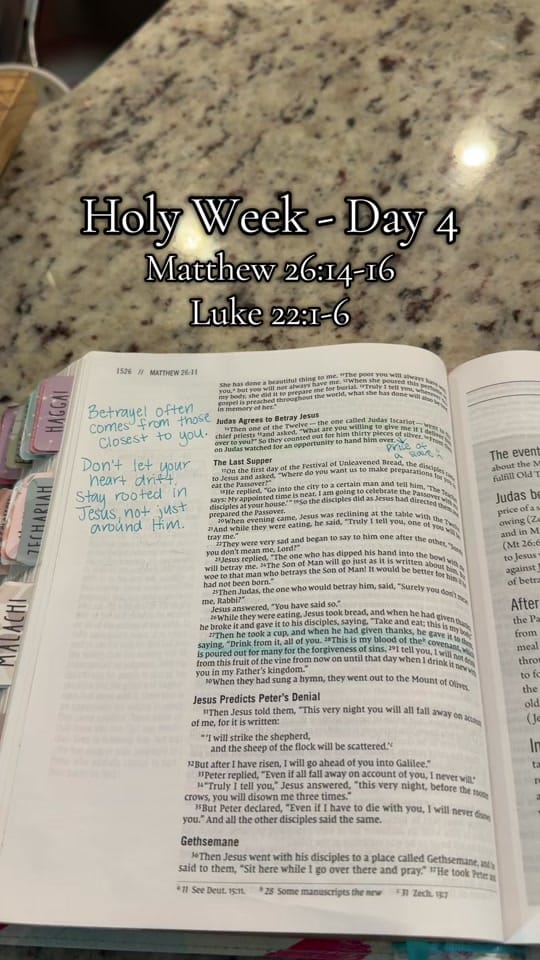 Holy Week - Day 4
Matthew 26:14-16
Luke 22:1-6
1526 // MATTHEW 26:11
HAGGAI
ZECHARIAH
MALACHI
Betrayel often
comes from those
closest to you.
Don't let your
heart drift.
Stay rooted in
Jesus, not just
around Him.
She has done a beautiful thing to me. ¹¹The poor you will always have
you,ᵃ but you will not always have me. ¹²When she poured this
my body, she did it to prepare me for burial. ¹³Truly I tell you, wherever
gospel is preached throughout the world, what she has done will also
in memory of her."
Judas Agrees to Betray Jesus
¹⁴Then one of the Twelve—the one called Judas Iscariot—went to
chief priests ¹⁵and asked, "What are you willing to give me if I deliver
over to you?" So they counted out for him thirty pieces of silver. ¹⁶From
on Judas watched for an opportunity to hand him over.
price of
a
The Last Supper
¹⁷On the first day of the Festival of Unleavened Bread, the disciples
to Jesus and asked, "Where do you want us to make preparations for
eat the Passover?"
¹⁸He replied, "Go into the city to a certain man and tell him, 'The
says: My appointed time is near. I am going to celebrate the Passover
disciples at your house.'" ¹⁹So the disciples did as Jesus had directed
prepared the Passover.
²⁰When evening came, Jesus was reclining at the table with the
²¹And while they were eating, he said, "Truly I tell you, one of you will
tray me."
²²They were very sad and began to say to him one after the other,
you don't mean me, Lord?"
²³Jesus replied, "The one who has dipped his hand into the bowl with
will betray me. ²⁴The Son of Man will go just as it is written about him.
woe to that man who betrays the Son of Man! It would be better for him
had not been born."
²⁵Then Judas, the one who would betray him, said, "Surely you don't
me, Rabbi?"
Jesus answered, "You have said so."
²⁶While they were eating, Jesus took bread, and when he had given
he broke it and gave it to his disciples, saying, "Take and eat; this is my
²⁷Then he took a cup, and when he had given thanks, he gave it to
saying, "Drink from it, all of you. ²⁸This is my blood of theᵇ covenant,
is poured out for many for the forgiveness of sins. ²⁹I tell you, I will not
from this fruit of the vine from now on until that day when I drink it new
you in my Father's kingdom."
³⁰When they had sung a hymn, they went out to the Mount of Olives.
Jesus Predicts Peter's Denial
³¹Then Jesus told them, "This very night you will all fall away on
of me, for it is written:
"'I will strike the shepherd,
and the sheep of the flock will be scattered.'ᶜ
³²But after I have risen, I will go ahead of you into Galilee."
³³Peter replied, "Even if all fall away on account of you, I never will."
³⁴"Truly I tell you," Jesus answered, "this very night, before the rooster
crows, you will disown me three times."
³⁵But Peter declared, "Even if I have to die with you, I will never disown
you." And all the other disciples said the same.
Gethsemane
³⁶Then Jesus went with his disciples to a place called Gethsemane, and
said to them, "Sit here while I go over there and pray." ³⁷He took Peter
ᵃ 11 See Deut. 15:11. ᵇ 28 Some manuscripts the new ᶜ 31 Zech. 13:7
The event
about the M
fulfill Old T
Judas be
price of a s
owing (Ze
and in M
(Mt 26:6
to Jesus
against J
of betra
After
the Pa
from
meal
throu
to fo
the
old
(Je
In